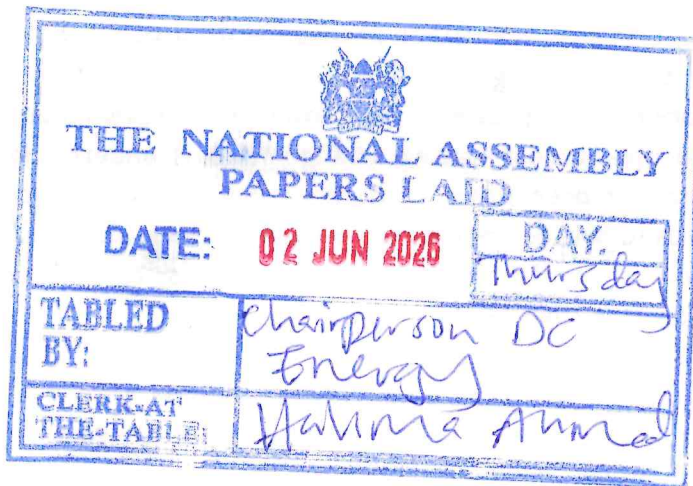 THE NATIONAL ASSEMBLY
PAPERS LAID
DATE: 02 JUN 2026
DAY.
Thursday
TABLED
BY:
Chairperson DC
Energy
CLERK-AT
THE-TABLE:
Halima Ahmed